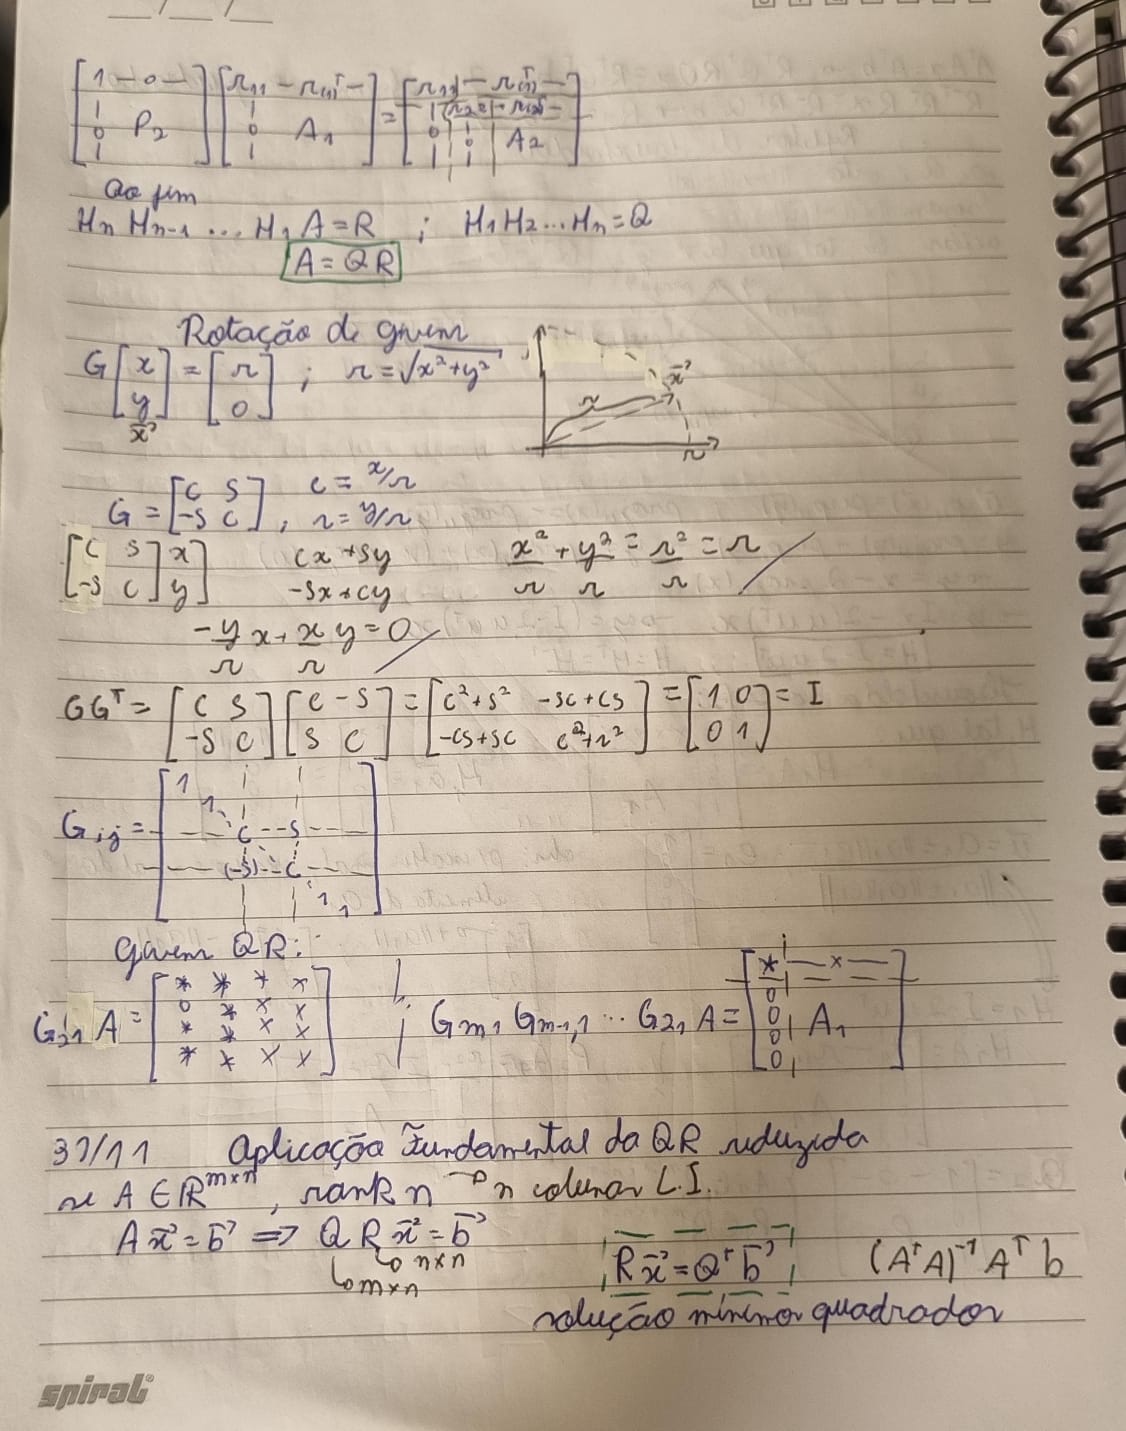 [1 — 0 — ; | 0 | P₂] [r₁₁ — r₍₁₎ᵀ — ; | 0 | A₁] = [r₁₁ | — r₍₁₎ᵀ — ; | 0 | r₂₂ | — r₍₂₎ᵀ — ; | 0 | A₂]
Ao fim
Hn Hn-1 ... H₁ A = R ; H₁ H₂ ... Hn = Q
A = QR
Rotação de givem
G [x ; y] = [r ; 0] ; r = √x²+y²
x⃗
r x⃗ r
G = [c s ; -s c] , c = x/r
r = y/r
[c s ; -s c] [x ; y] cx + sy x²/r + y²/r = r²/r = r
-sx + cy
-y/r x + x/r y = 0
GGᵀ = [c s ; -s c] [c -s ; s c] = [c²+s² -sc+cs ; -cs+sc c²+r²] = [1 0 ; 0 1] = I
Gij = [1 1 ; c -- s ; (-s) -- c ; 1 1]
givem QR:
A = [* * * x ; 0 * x x ; * * x x ; * * x x] ; Gm,1 Gm-1,1 ... G2,1 A = [* | — x — ; 0 0 0 0 | A₁]
31/11 Aplicação Fundamental da QR reduzida
se A ∈ ℝᵐˣⁿ , rank n → n colunas L.I.
A x⃗ = b⃗ => Q R x⃗ = b⃗
↳ n×n
↳ m×n
R x⃗ = Qᵀ b⃗ (AᵀA)⁻¹ Aᵀ b
solução mínimos quadrados
spiral®